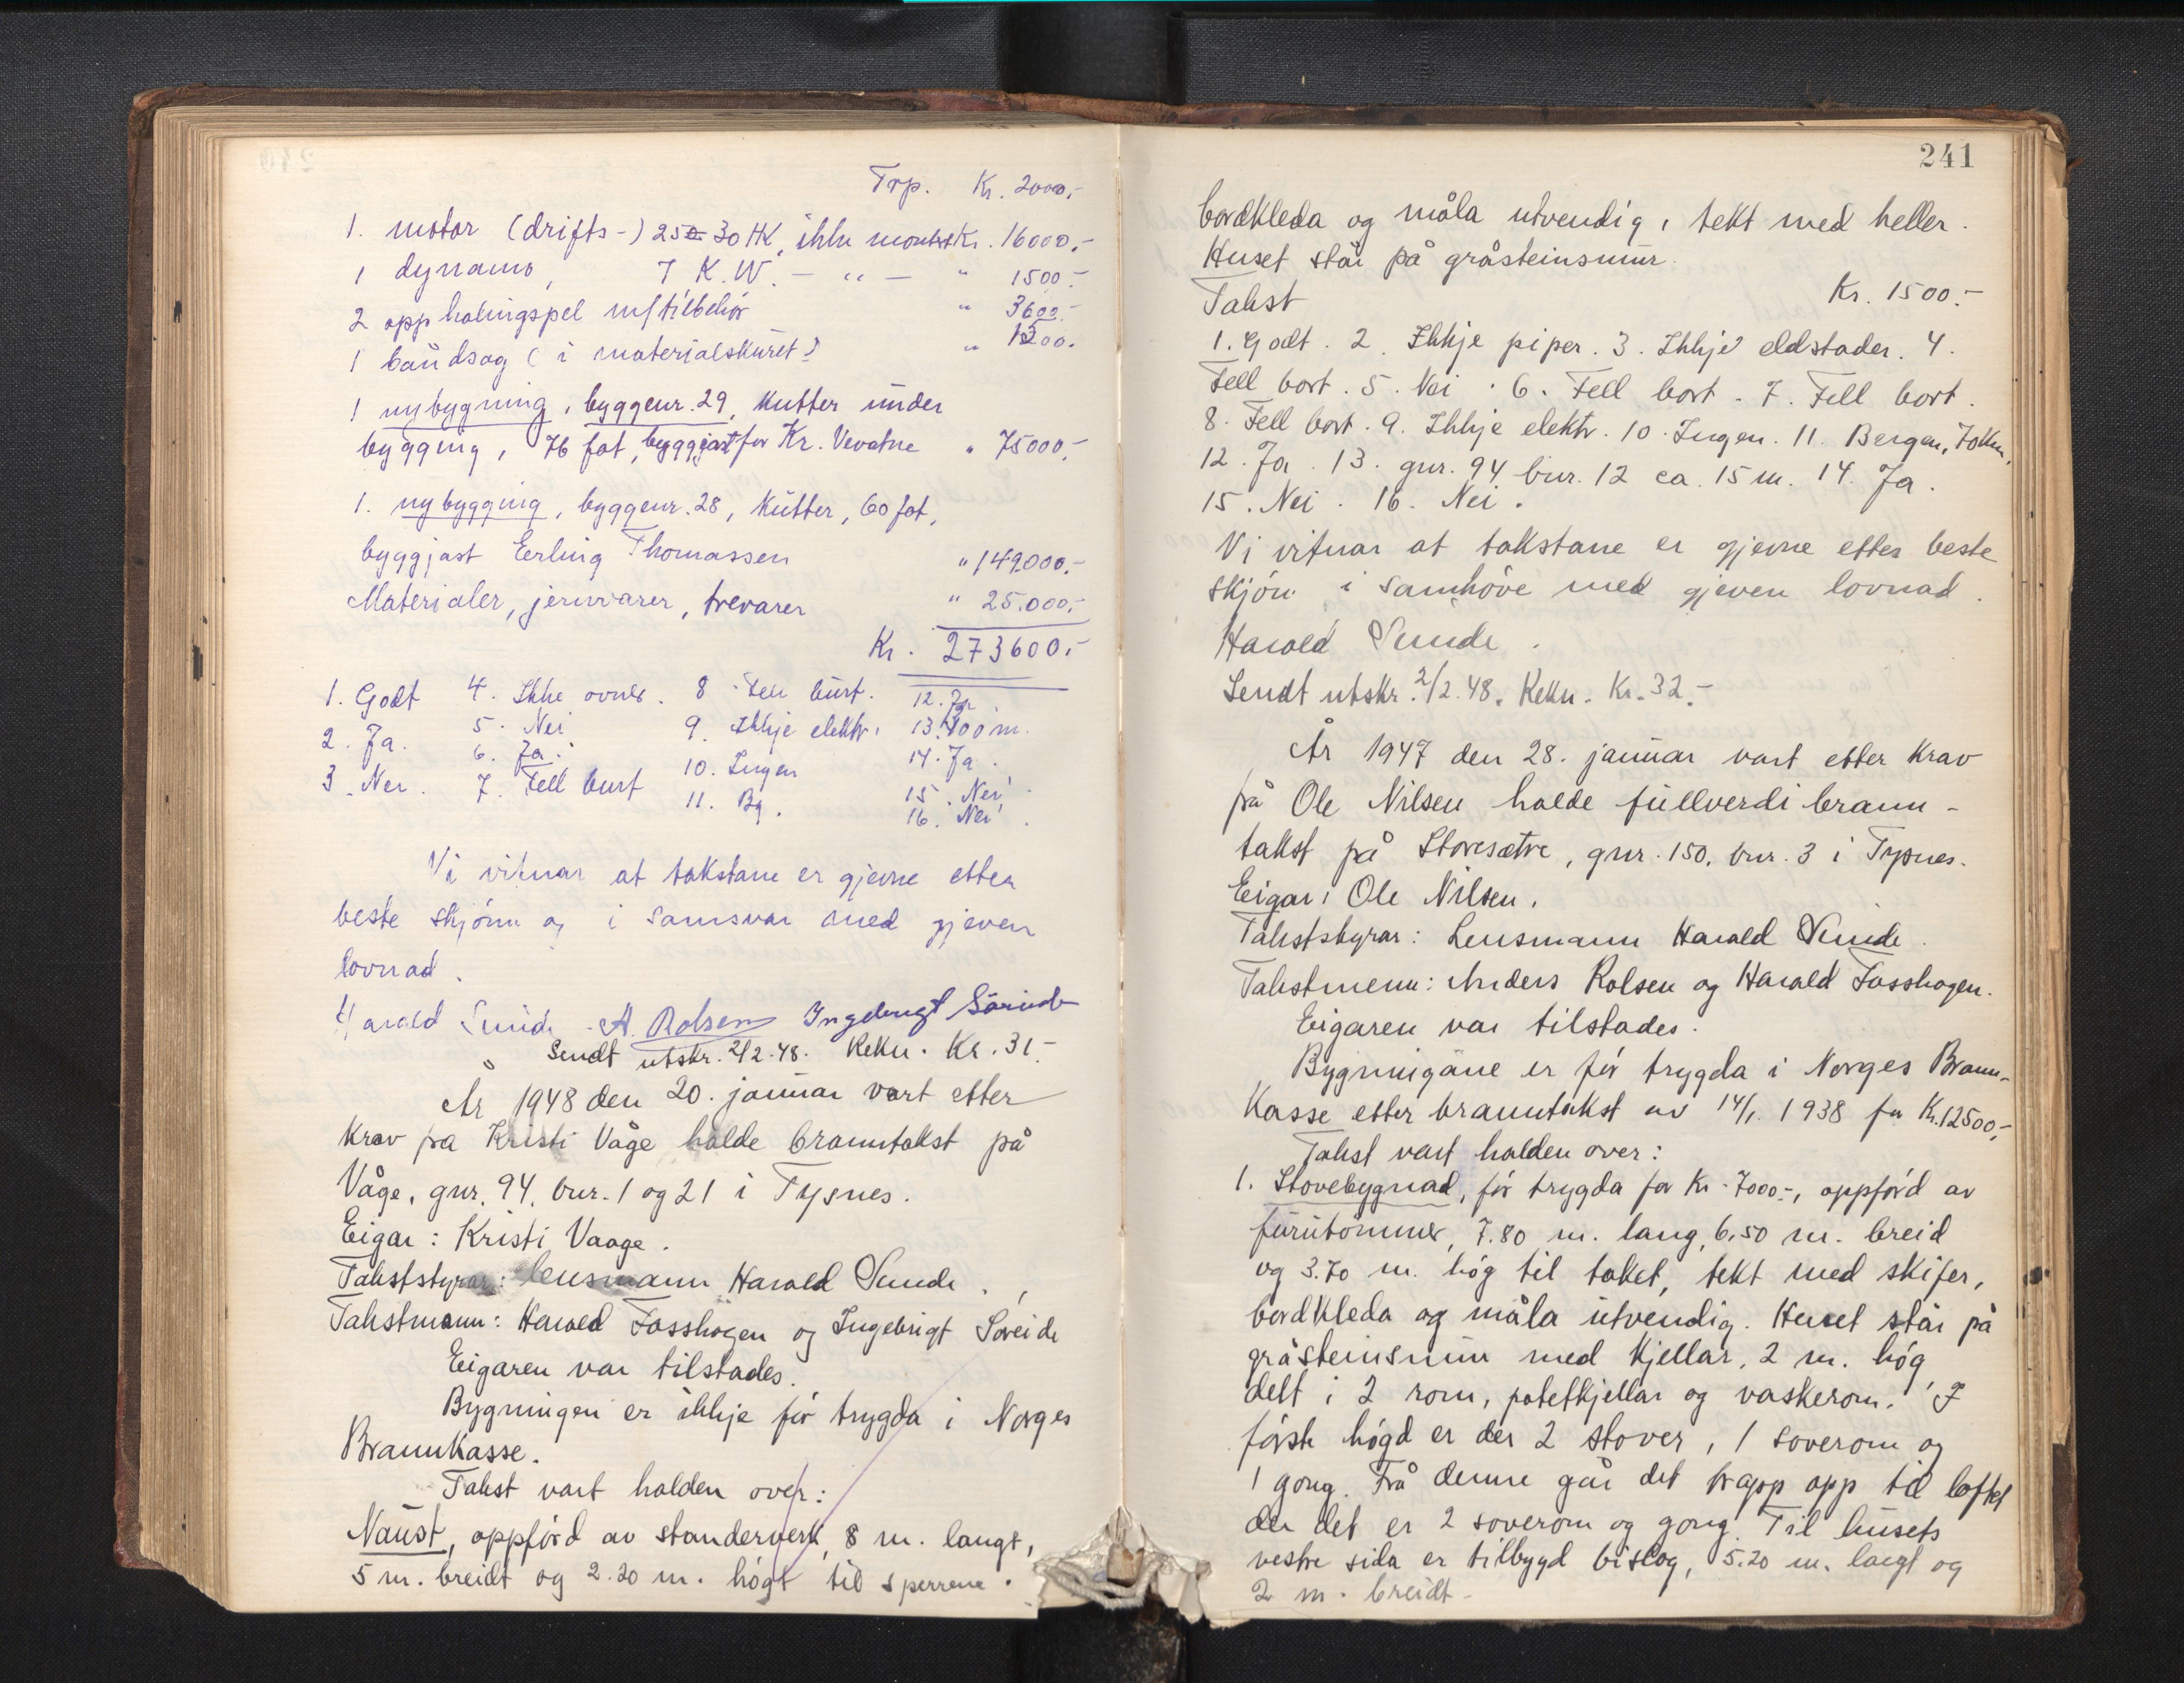 Trp. Kr. 2000,-
1. motor (drifts-) 25 a 30 HK, ikke montert Kr. 16000,-
1 dynamo, 7 K.W. - " - " 1500.-
2 opphalingspel m/tilbehör " 3600.-
1 båndsag (i materialskuret) " 1200.
1 nybygning, byggenr. 29, Kutter under
bygging, 76 fot, byggjast for Kr. Vevatne " 75000,-
1. nybygging, byggenr. 28, Kutter, 60 fot,
byggjast Erling Thomassen " 149.000.-
Materialer, jernvarer, trevarer " 25.000,-
Kr. 273600.-
1. Godt 4. Ikke ovner. 8. Fell burt. 12. Ja
2. Ja. 5. Nei 9. Ikkje elektr. 13. 100 m.
3. Nei. 6. Ja. 10. Ingen 14. Ja.
7. Fell burt 11. Bg. 15. Nei.
16. Nei.
Vi vitnar at takstane er gjevne etter
beste skjönn og i samsvar med gjeven
lovnad.
Harald Sunde. A. Rolsen Ingebrigt Söreide
Sendt utskr. 2/2-48. Rekn. Kr. 31.-
År 1948 den 20. januar vart etter
krav frå Kristi Våge halde branntakst på
Våge, gnr. 94, bnr. 1 og 21 i Tysnes.
Eigar: Kristi Vaage.
Takststyrar: Lensmann Harald Sunde.
Takstmenn: Harald Fasshagen og Ingebrigt Söreide
Eigaren var tilstades.
Bygningen er ikkje för trygda i Norges
Brannkasse.
Takst vart halden over:
Naust, oppförd av standerverk, 8 m. langt,
5 m. breidt og 2.20 m. högt til sperrene.
241
bordkleda og måla utvendig, tekt med heller.
Huset står på gråsteinsmur.
Takst Kr. 1500.-
1. Godt. 2. Ikkje piper. 3. Ikkje eldstader. 4.
Fell bort. 5. Nei. 6. Fell bort. 7. Fell bort.
8. Fell bort. 9. Ikkje elektr. 10. Ingen. 11. Bergen, 70 km.
12. Ja. 13. gnr. 94 bnr. 12 ca. 15 m. 14. Ja.
15. Nei. 16. Nei.
Vi vitnar at takstane er gjevne etter beste
skjön i samhöve med gjeven lovnad.
Harald Sunde.
Sendt utskr. 2/2.48. Rekn. Kr. 32.-
År 1947 den 28. januar vart etter krav
frå Ole Nilsen halde fullverdi brann-
takst på Storesætre, gnr. 150, bnr. 3 i Tysnes.
Eigar: Ole Nilsen.
Takststyrar: Lensmann Harald Sunde.
Takstmenn: Anders Rolsen og Harald Fasshagen.
Eigaren var tilstades.
Bygningane er för trygda i Norges Brann-
Kasse etter branntakst av 14/1. 1938 for Kr. 12500,-
Takst vart halden over:
1. Stovebygnad, för trygda for Kr. 7000.-, oppförd av
furutömmer, 7.80 m. lang, 6,50 m. breid
og 3.70 m. hög til taket, tekt med skifer,
bordkleda og måla utvendig. Huset står på
gråsteinsmur med Kjellar, 2 m. hög,
delt i 2 rom, potetkjellar og vaskerom. I
förste högd er der 2 stover, 1 soverom og
1 gong. Frå denne går det trapp opp til loftet
der det er 2 soverom og gong. Til husets
vestre sida er tilbygd bislag, 5.20 m. langt og
2 m. breidt.